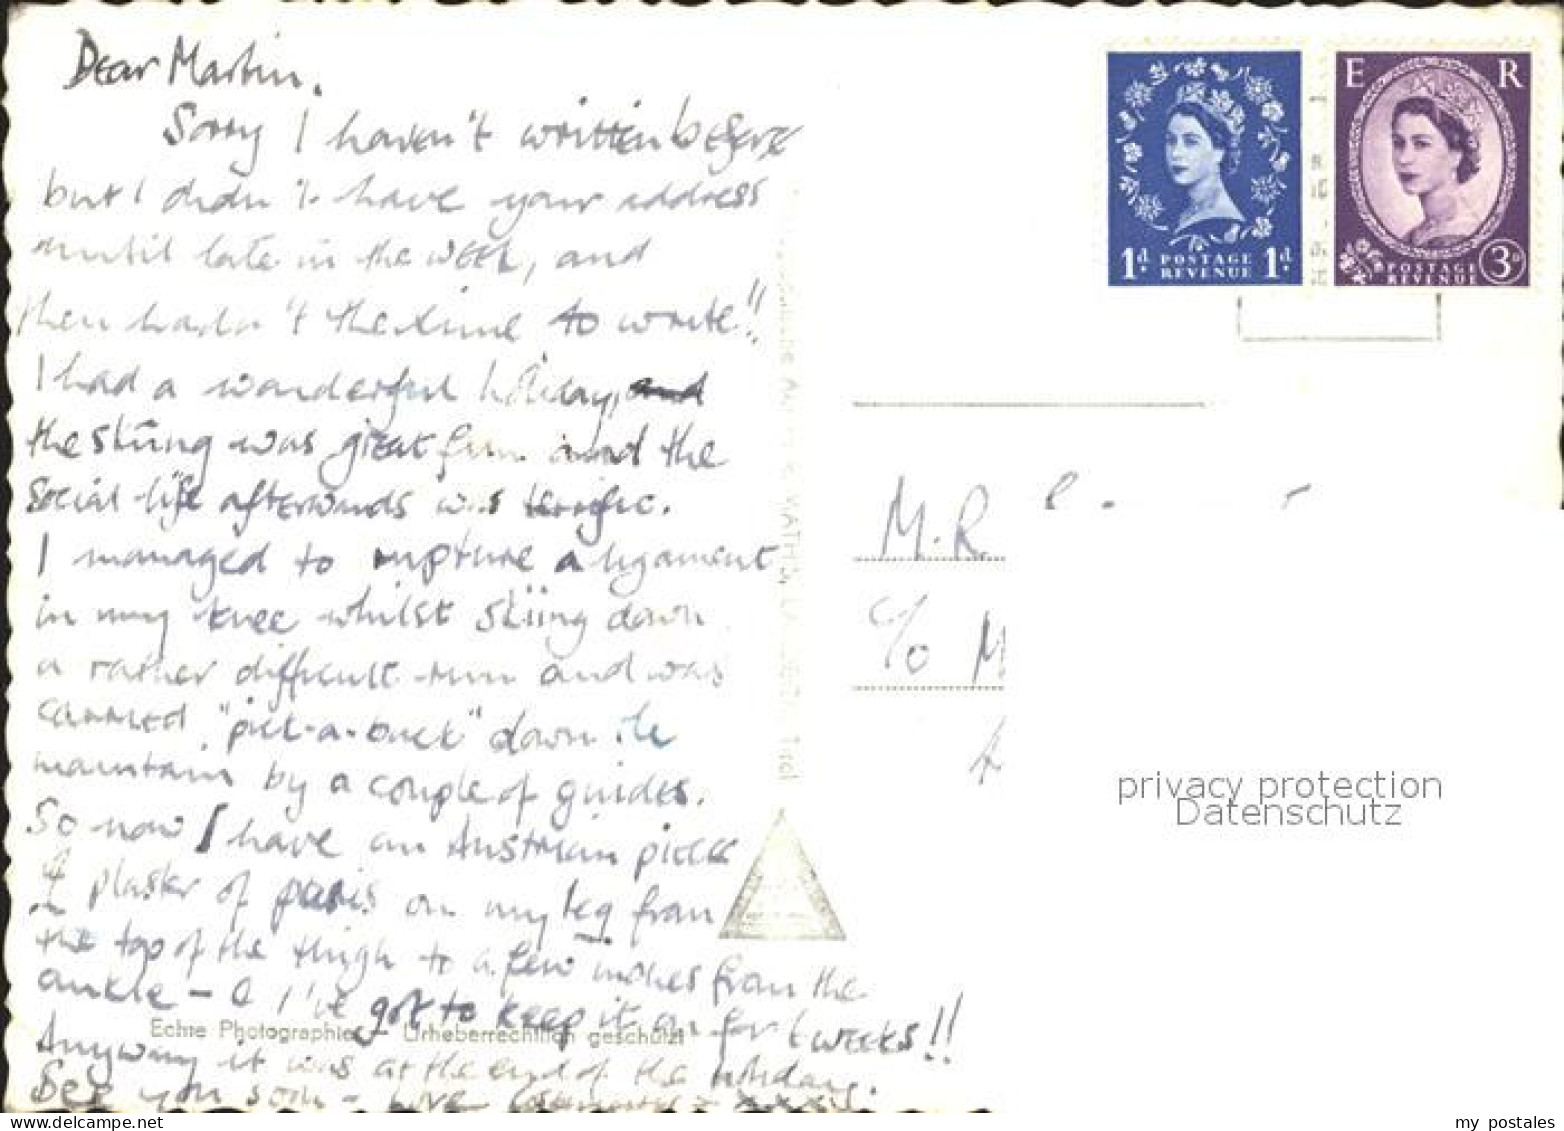 Dear Martin.
Sorry I haven't written before
but I didn't have your address
until late in the week, and
then hadn't the time to write!!
I had a wonderful holiday, and
the skiing was great fun and the
social life afterwards was terrific.
I managed to rupture a ligament
in my knee whilst skiing down
a rather difficult run and was
carried "pick-a-back" down the
mountain by a couple of guides.
So now I have an Austrian piece
of plaster of paris on my leg from
the top of the thigh to a few inches from the
ankle - & I've got to keep it on for 6 weeks!!
Anyway it was at the end of the holiday.
See you soon - Love
Echte Photographie - Urheberrechtlich geschützt
Tirol
1d. POSTAGE REVENUE 1d.
E R
POSTAGE REVENUE 3D
M.R.
c/o M
privacy protection
Datenschutz
my postales